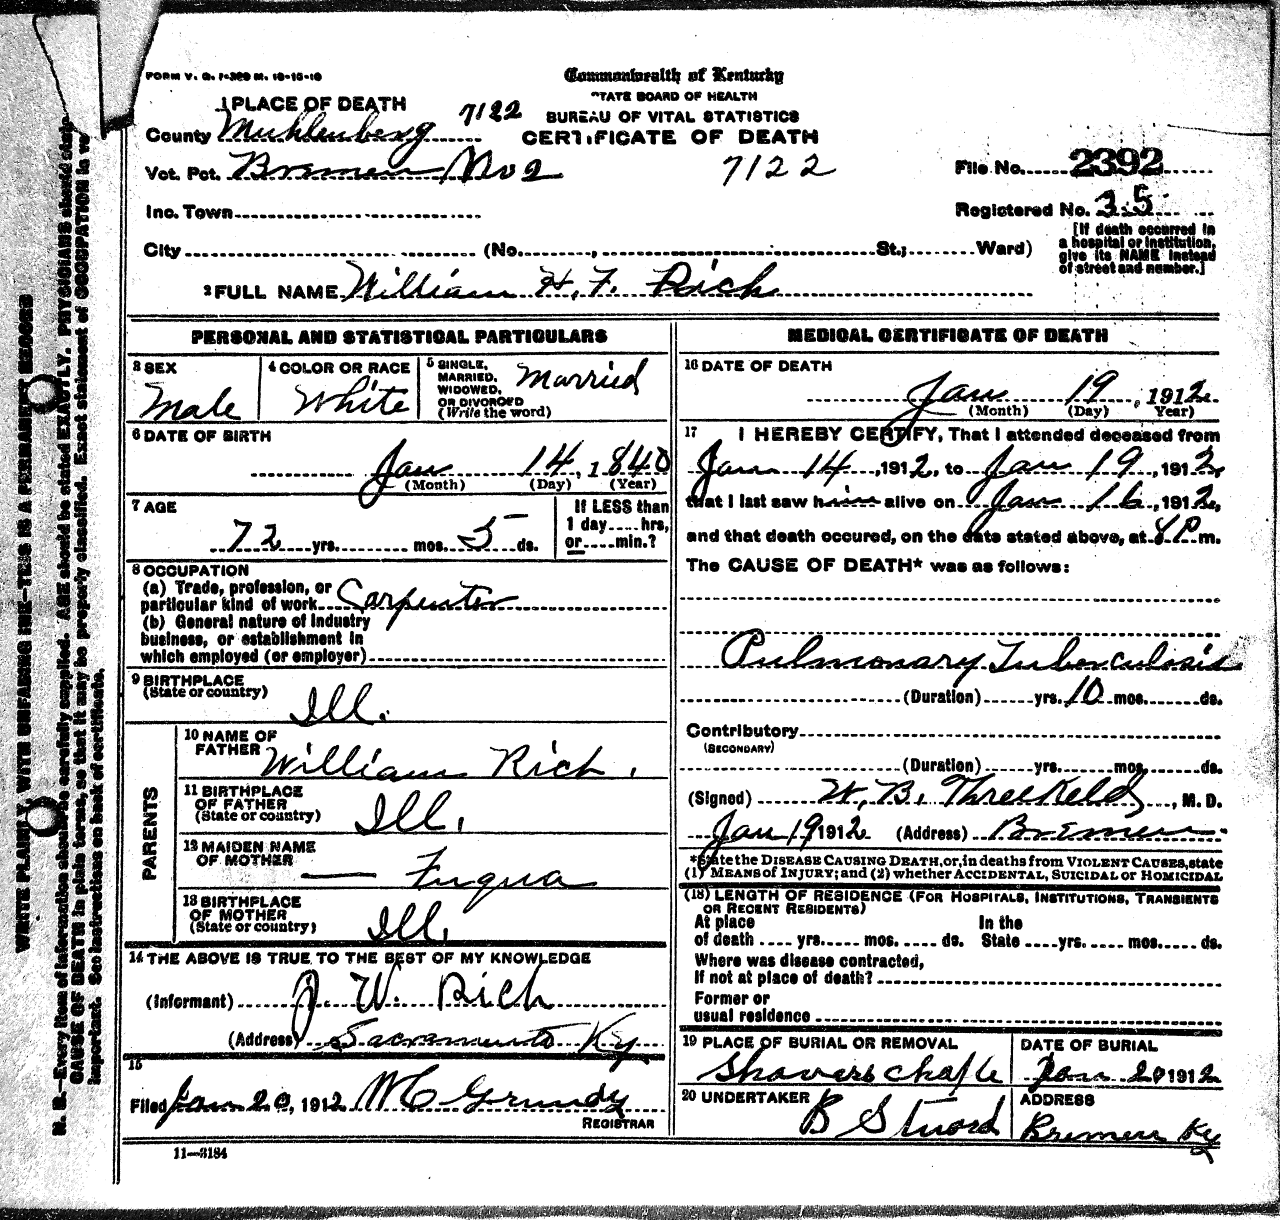 FORM V. S. 1-300 M. 10-15-10
Commonwealth of Kentucky
STATE BOARD OF HEALTH
BUREAU OF VITAL STATISTICS
CERTIFICATE OF DEATH
1 PLACE OF DEATH
County Muhlenberg 7122
Vot. Pct. Bremen No 2 7122
File No. 2392
Inc. Town
Registered No. 35
City (No., St.; Ward)
[If death occurred in
a hospital or institution,
give its NAME instead
of street and number.]
2 FULL NAME William H. F. Rich
PERSONAL AND STATISTICAL PARTICULARS
3 SEX
Male
4 COLOR OR RACE
White
5 SINGLE,
MARRIED,
WIDOWED,
OR DIVORCED
(Write the word)
Married
6 DATE OF BIRTH
Jan 14, 1840
(Month) (Day) (Year)
7 AGE
72 yrs. mos. 5 ds.
If LESS than
1 day hrs,
or min.?
8 OCCUPATION
(a) Trade, profession, or
particular kind of work Carpenter
(b) General nature of industry
business, or establishment in
which employed (or employer)
9 BIRTHPLACE
(State or country)
Ill.
PARENTS
10 NAME OF
FATHER William Rich.
11 BIRTHPLACE
OF FATHER
(State or country)
Ill.
12 MAIDEN NAME
OF MOTHER
— Fuqua
13 BIRTHPLACE
OF MOTHER
(State or country)
Ill.
14 THE ABOVE IS TRUE TO THE BEST OF MY KNOWLEDGE
(Informant) J. W. Rich
(Address) Sacramento Ky.
15
Filed Jan 20, 1912 M C Grundy
REGISTRAR
11—3184
MEDICAL CERTIFICATE OF DEATH
16 DATE OF DEATH
Jan 19, 1912
(Month) (Day) Year)
17 I HEREBY CERTIFY, That I attended deceased from
Jan 14, 1912, to Jan 19, 1912,
that I last saw him alive on Jan 16, 1912,
and that death occured, on the date stated above, at 8 P m.
The CAUSE OF DEATH* was as follows:
Pulmonary Tuberculosis
(Duration) yrs. 10 mos. ds.
Contributory
(SECONDARY)
(Duration) yrs. mos. ds.
(Signed) W. B. Threlkeld, M. D.
Jan 19 1912 (Address) Bremen
*State the DISEASE CAUSING DEATH, or, in deaths from VIOLENT CAUSES, state
(1) MEANS of INJURY; and (2) whether ACCIDENTAL, SUICIDAL or HOMICIDAL
(18) LENGTH OF RESIDENCE (FOR HOSPITALS, INSTITUTIONS, TRANSIENTS
OR RECENT RESIDENTS)
At place In the
of death yrs. mos. ds. State yrs. mos. ds.
Where was disease contracted,
If not at place of death?
Former or
usual residence
19 PLACE OF BURIAL OR REMOVAL
Shavers chaple
DATE OF BURIAL
Jan 20 1912
20 UNDERTAKER
B Stuard
ADDRESS
Bremen Ky
WRITE PLAINLY, WITH UNFADING INK—THIS IS A PERMANENT RECORD
N. B.—Every item of information should be carefully supplied. AGE should be stated EXACTLY. PHYSICIANS should state
CAUSE OF DEATH in plain terms, so that it may be properly classified. Exact statement of OCCUPATION is ve
important. See instructions on back of certificate.